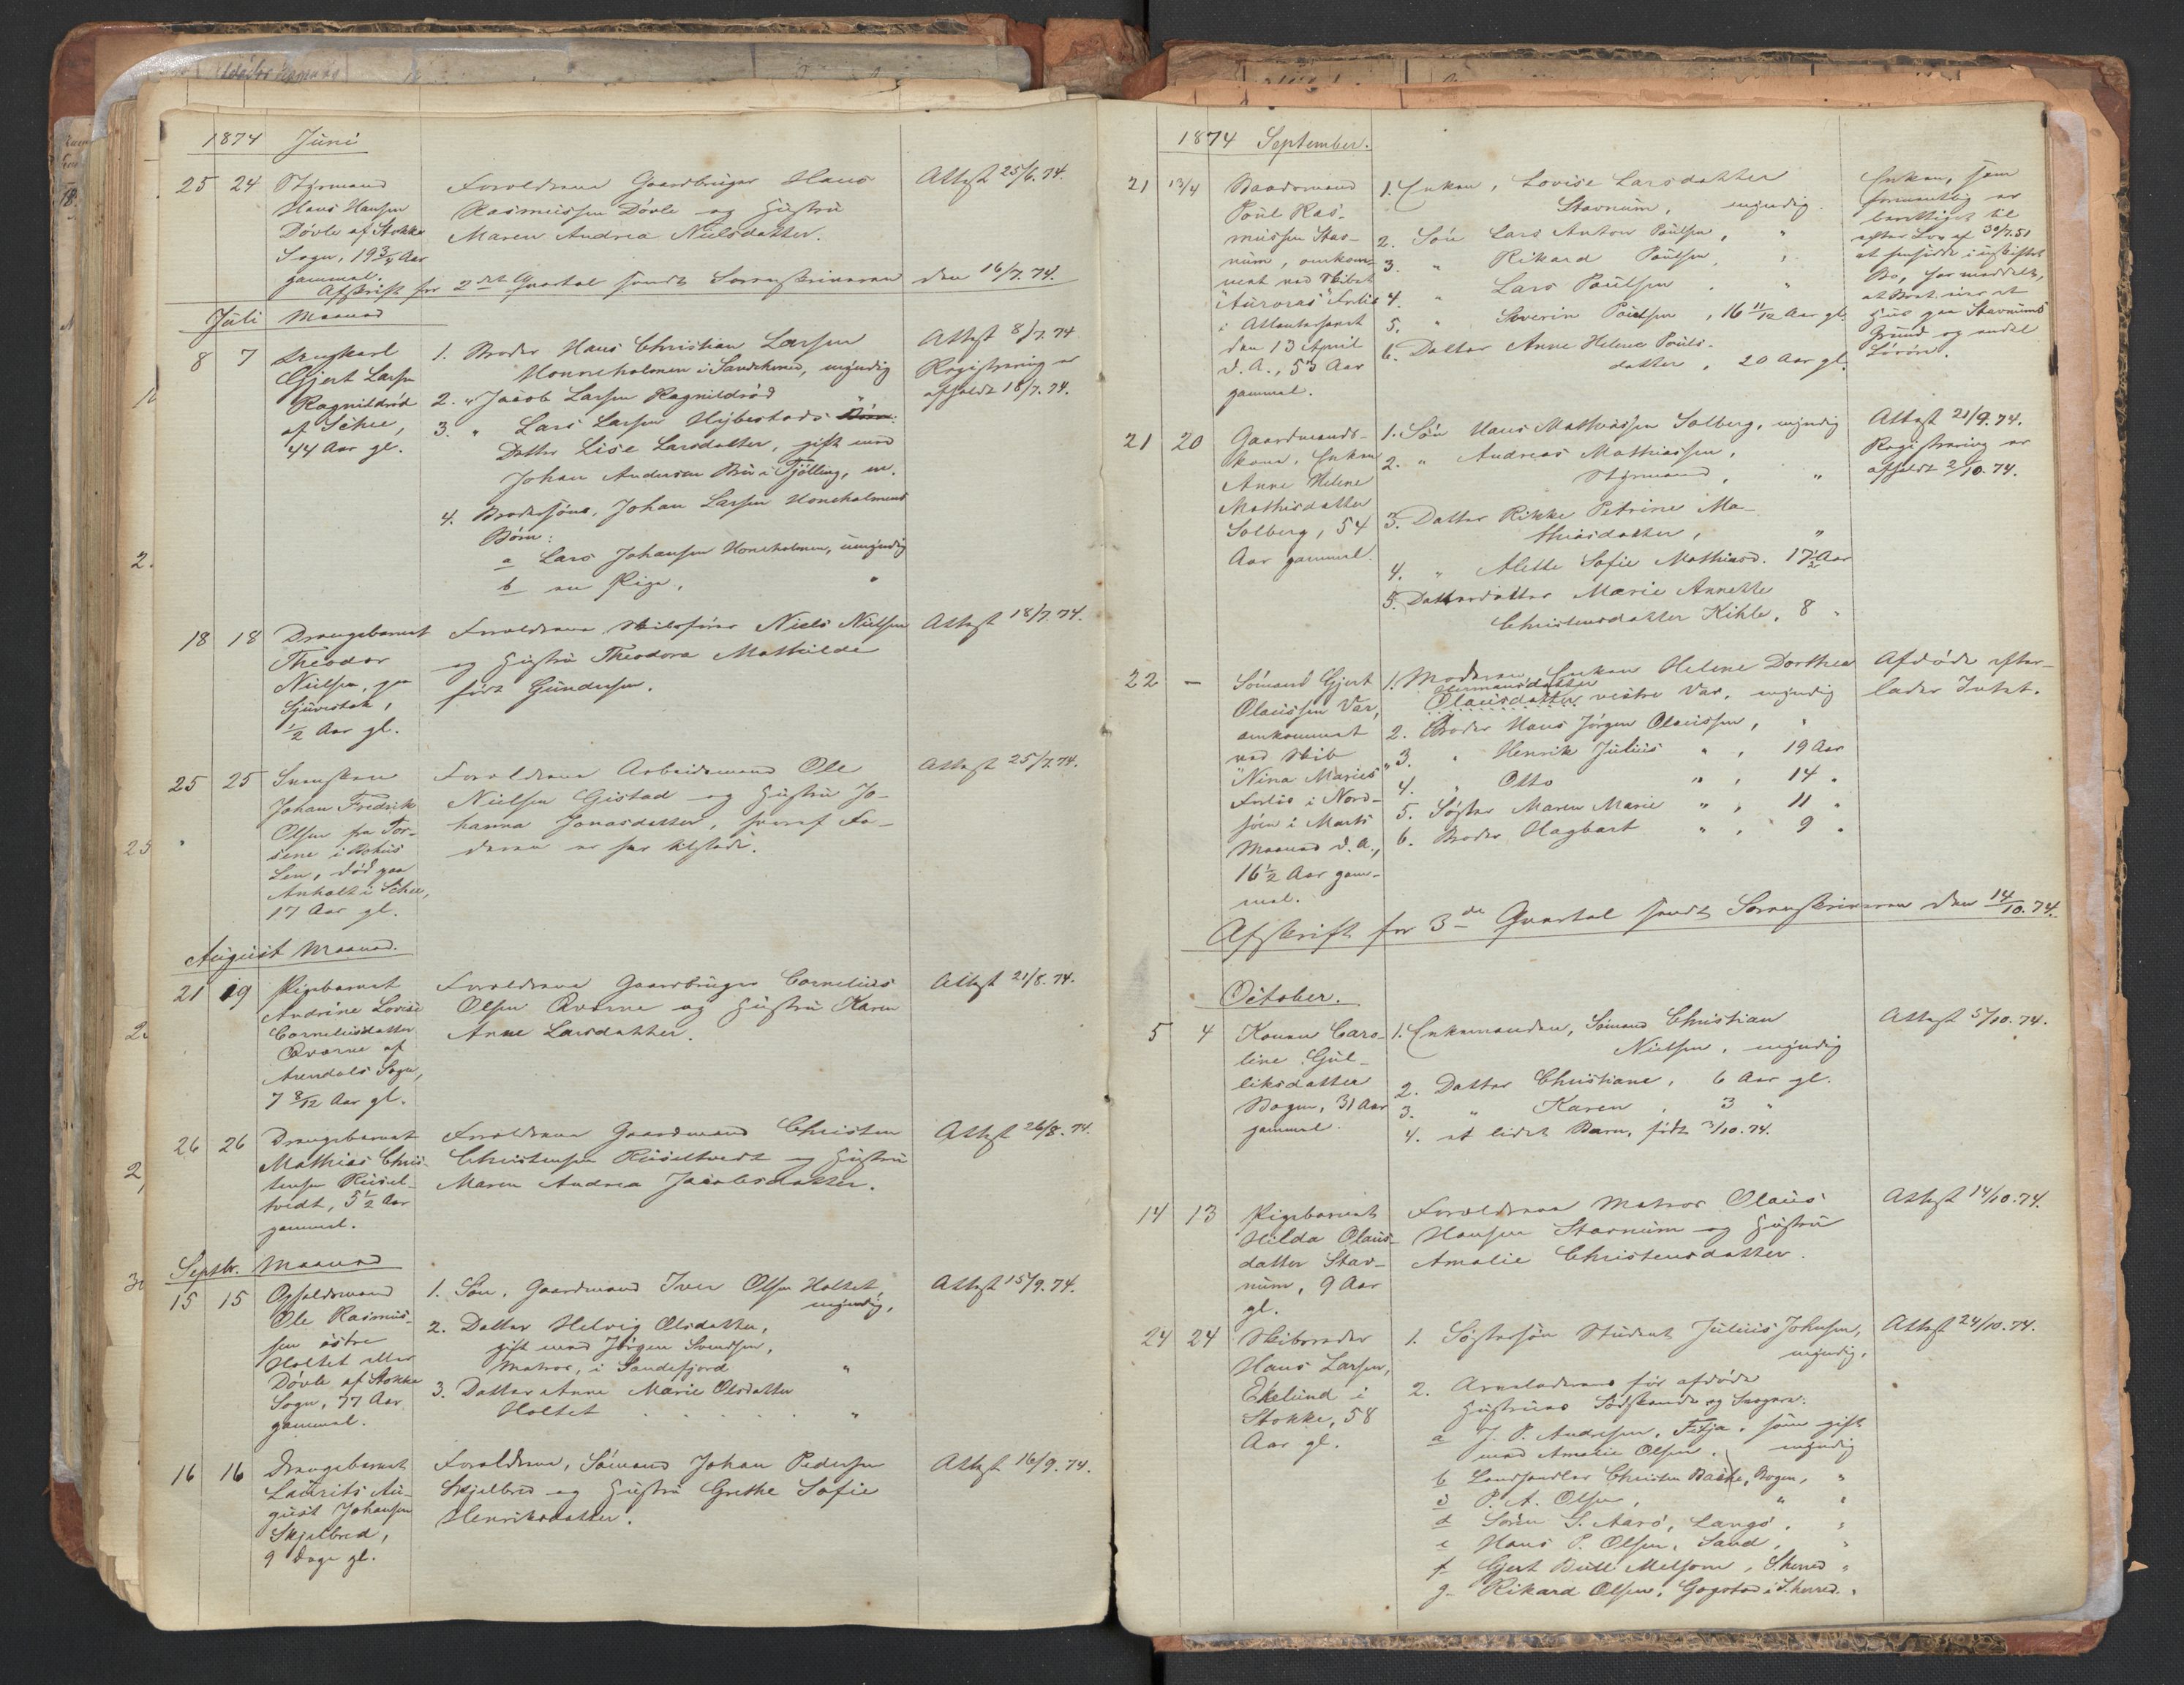 1874 Juni
25 24 Styrmand Forældrene Gaardbruger Hans Attest 25/6.74.
Hans Hansen Rasmussen Døvle og Hustru
Døvle af Stokke Maren Andrea Nielsdatter.
Sogn, 19 3/4 Aar
gammel.
Afskrift for 2det Quartal sendt Sorenskriveren den 16/7.74.
Juli Maaned
8 7 Ungkarl 1. Broder Hans Christian Larsen Attest 8/7.74
Gjert Larsen Honneholmen i Sandeherred, myndig Registrering er
Ragnildrød 2. " Jacob Larsen Ragnildrød " afholdt 18/7.74.
af Sehee, 3. " Lars Larsen Hybestads Børn:
44 Aar gl. Datter Lise Larsdatter, gift med
Johan Andersen Bru i Tjølling, m.
4. Brodersøns, Johan Larsen Honeholmens
Børn:
a Lars Johansen Honeholmen, umyndig
b en Pige, "
18 18 Drengebarnet Forældrene Skibsfører Niels Nielsen Attest 18/7.74.
Theodor og Hustru Theodora Mathilde
Nielsen, paa født Gundersen.
Sjuestok,
1/2 Aar gl.
25 25 Svensken Forældrene Arbeidsmand Ole Attest 25/7.74.
Johan Fredrik Nielsen Gistad og Hustru Jo-
Olsen fra Tos- hanna Jonasdatter, hvoraf Fa-
sene i Bohus deren er her tilstede.
Len, død paa
Anholt i Sehee,
17 Aar gl.
August Maaned.
21 19 Pigebarnet Forældrene Gaardbruger Cornelius Attest 21/8.74.
Andrine Lovise Olsen Qvarne og Hustru Karen
Corneliusdatter Anne Larsdatter.
Qvarne af
Arendals Sogn,
7 8/12 Aar gl.
26 26 Drengebarnet Forældrene Gaardmand Christen Attest 26/8.74.
Mathias Chris- Christensen Ruseltvedt og Hustru
tensen Rusel- Maren Andrea Jacobsdatter.
tvedt, 5 1/2 Aar
gammel.
Septbr. Maaned
15 15 Opholdsmand 1. Søn, Gaardmand Iver Olsen Holtet, Attest 15/9.74.
Ole Rasmus- myndig,
sen østre 2. Datter Helvig Olsdatter,
Holtet eller gift med Jørgen Svendsen,
Døvle af Stokke Matros, i Sandefjord "
Sogn, 77 Aar 3. Datter Anne Marie Olsdatter
gammel. Holtet "
16 16 Drengebarnet Forældrene, Sømand Johan Pedersen Attest 16/9.74.
Laurits Au- Skjelbred og Hustru Grethe Sofie
gust Johansen Henriksdatter.
Skjelbred,
9 Dage gl.
1874 September.
21 13/4 Baadsmand 1. Enken, Lovise Larsdatter Enken, som
Poul Ras- Stavnum, myndig. formentlig er
mussen Stav- 2. Søn Lars Anton Poulsen, " berettiget til
num, omkom- 3. " Rikard Poulsen, " efter Lov af 30/7.51
met ved Skibet 4. " Lars Poulsen, " at hensidde i uskiftet
"Auroras" Forlis 5. " Severin Poulsen, 16 11/12 Aar gl. Bo, har meddelt,
i Atlanterhavet 6. Datter Anne Helene Pouls- at Boet eier et
den 13 April datter, 20 Aar gl. Hus paa Stavnums
d. A., 53 Aar Grund og andet
gammel. Løsøre.
21 20 Gaardmands- 1. Søn Hans Mathiassen Solberg, myndig Attest 21/9.74.
kone, Enken 2. " Andreas Mathiassen, Registrering er
Anne Helene Styrmand, " afholdt 2/10.74.
Mathisdatter 3. Datter Rikke Petrine Ma-
Solberg, 54 thiasdatter, "
Aar gammel. 4. " Alette Sofie Mathiasd. 17 1/2 Aar
5. Datterdatter Marie Annette
Christensdatter Kihle, 8 "
22 — Sømand Gjert 1. Moderen Enken Helene Dorthea Afdøde efter-
Olaussen Var, Hermansdatter
omkommet Olausdatter vestre Var, myndig lader Intet.
ved Skib 2. Broder Hans Jørgen Olaussen, "
"Nina Maries" 3. " Henrik Julius " , 19 Aar
Forlis i Nord- 4. " Otto " , 14 "
søen i Marts 5. Søster Maren Marie " , 11 "
Maaned d. A., 6. Broder Hagbart " , 9 "
16 1/2 Aar gam-
mel.
Afskrift for 3de Quartal sendt Sorenskriveren den 14/10.74.
October.
5 4 Konen Caro- 1. Enkemanden, Sømand Christian Attest 5/10.74.
line Gul- Nielsen, myndig
liksdatter 2. Datter Christiane, 6 Aar gl.
Bogen, 31 Aar 3. " Karen, 3 "
gammel. 4. et lidet Barn, født 3/10.74.
14 13 Pigebarnet Forældrene Matros Olaus Attest 14/10.74.
Hilda Olaus- Hansen Stavnum og Hustru
datter Stav- Amalie Christensdatter.
num, 9 Aar
gl.
24 24 Skibsreder 1. Søstersøn Student Julius Johnsen, Attest 24/10.74.
Hans Larsen, myndig,
Ekelund i 2. Arveladerens før afdøde
Stokke, 58 Hustrues Sødskende og Svogere:
Aar gl. a J. P. Andresen, Fitja, som gift
med Amalie Olsen, myndig
b Landhandler Christen Bache, Bogen, "
c P. A. Olsen, " "
d Søren S. Aarø, Langø, "
e Hans P. Olsen, Sand, "
f Gjert Bull Melsom, S.herred "
g Rikard Olsen, Gogstad i S.herred. "